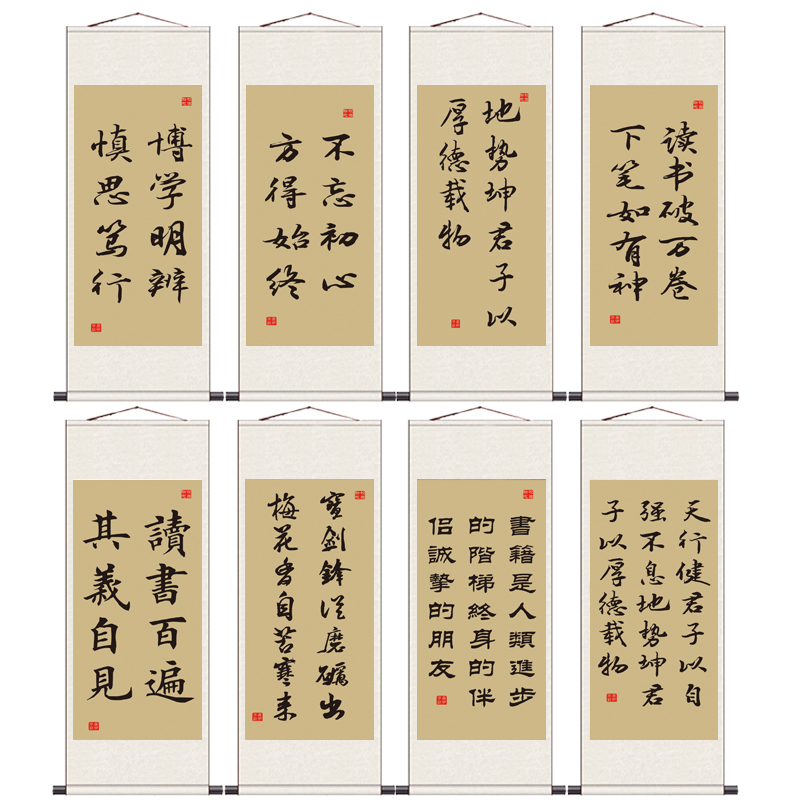 博学明辨
慎思笃行
不忘初心
方得始终
地势坤君子以
厚德载物
读书破万卷
下笔如有神
讀書百遍
其義自見
宝剑鋒从磨礪出
梅花香自苦寒来
書籍是人類進步
的階梯終身的伴
侣誠摯的朋友
天行健君子以自
强不息地势坤君
子以厚德载物